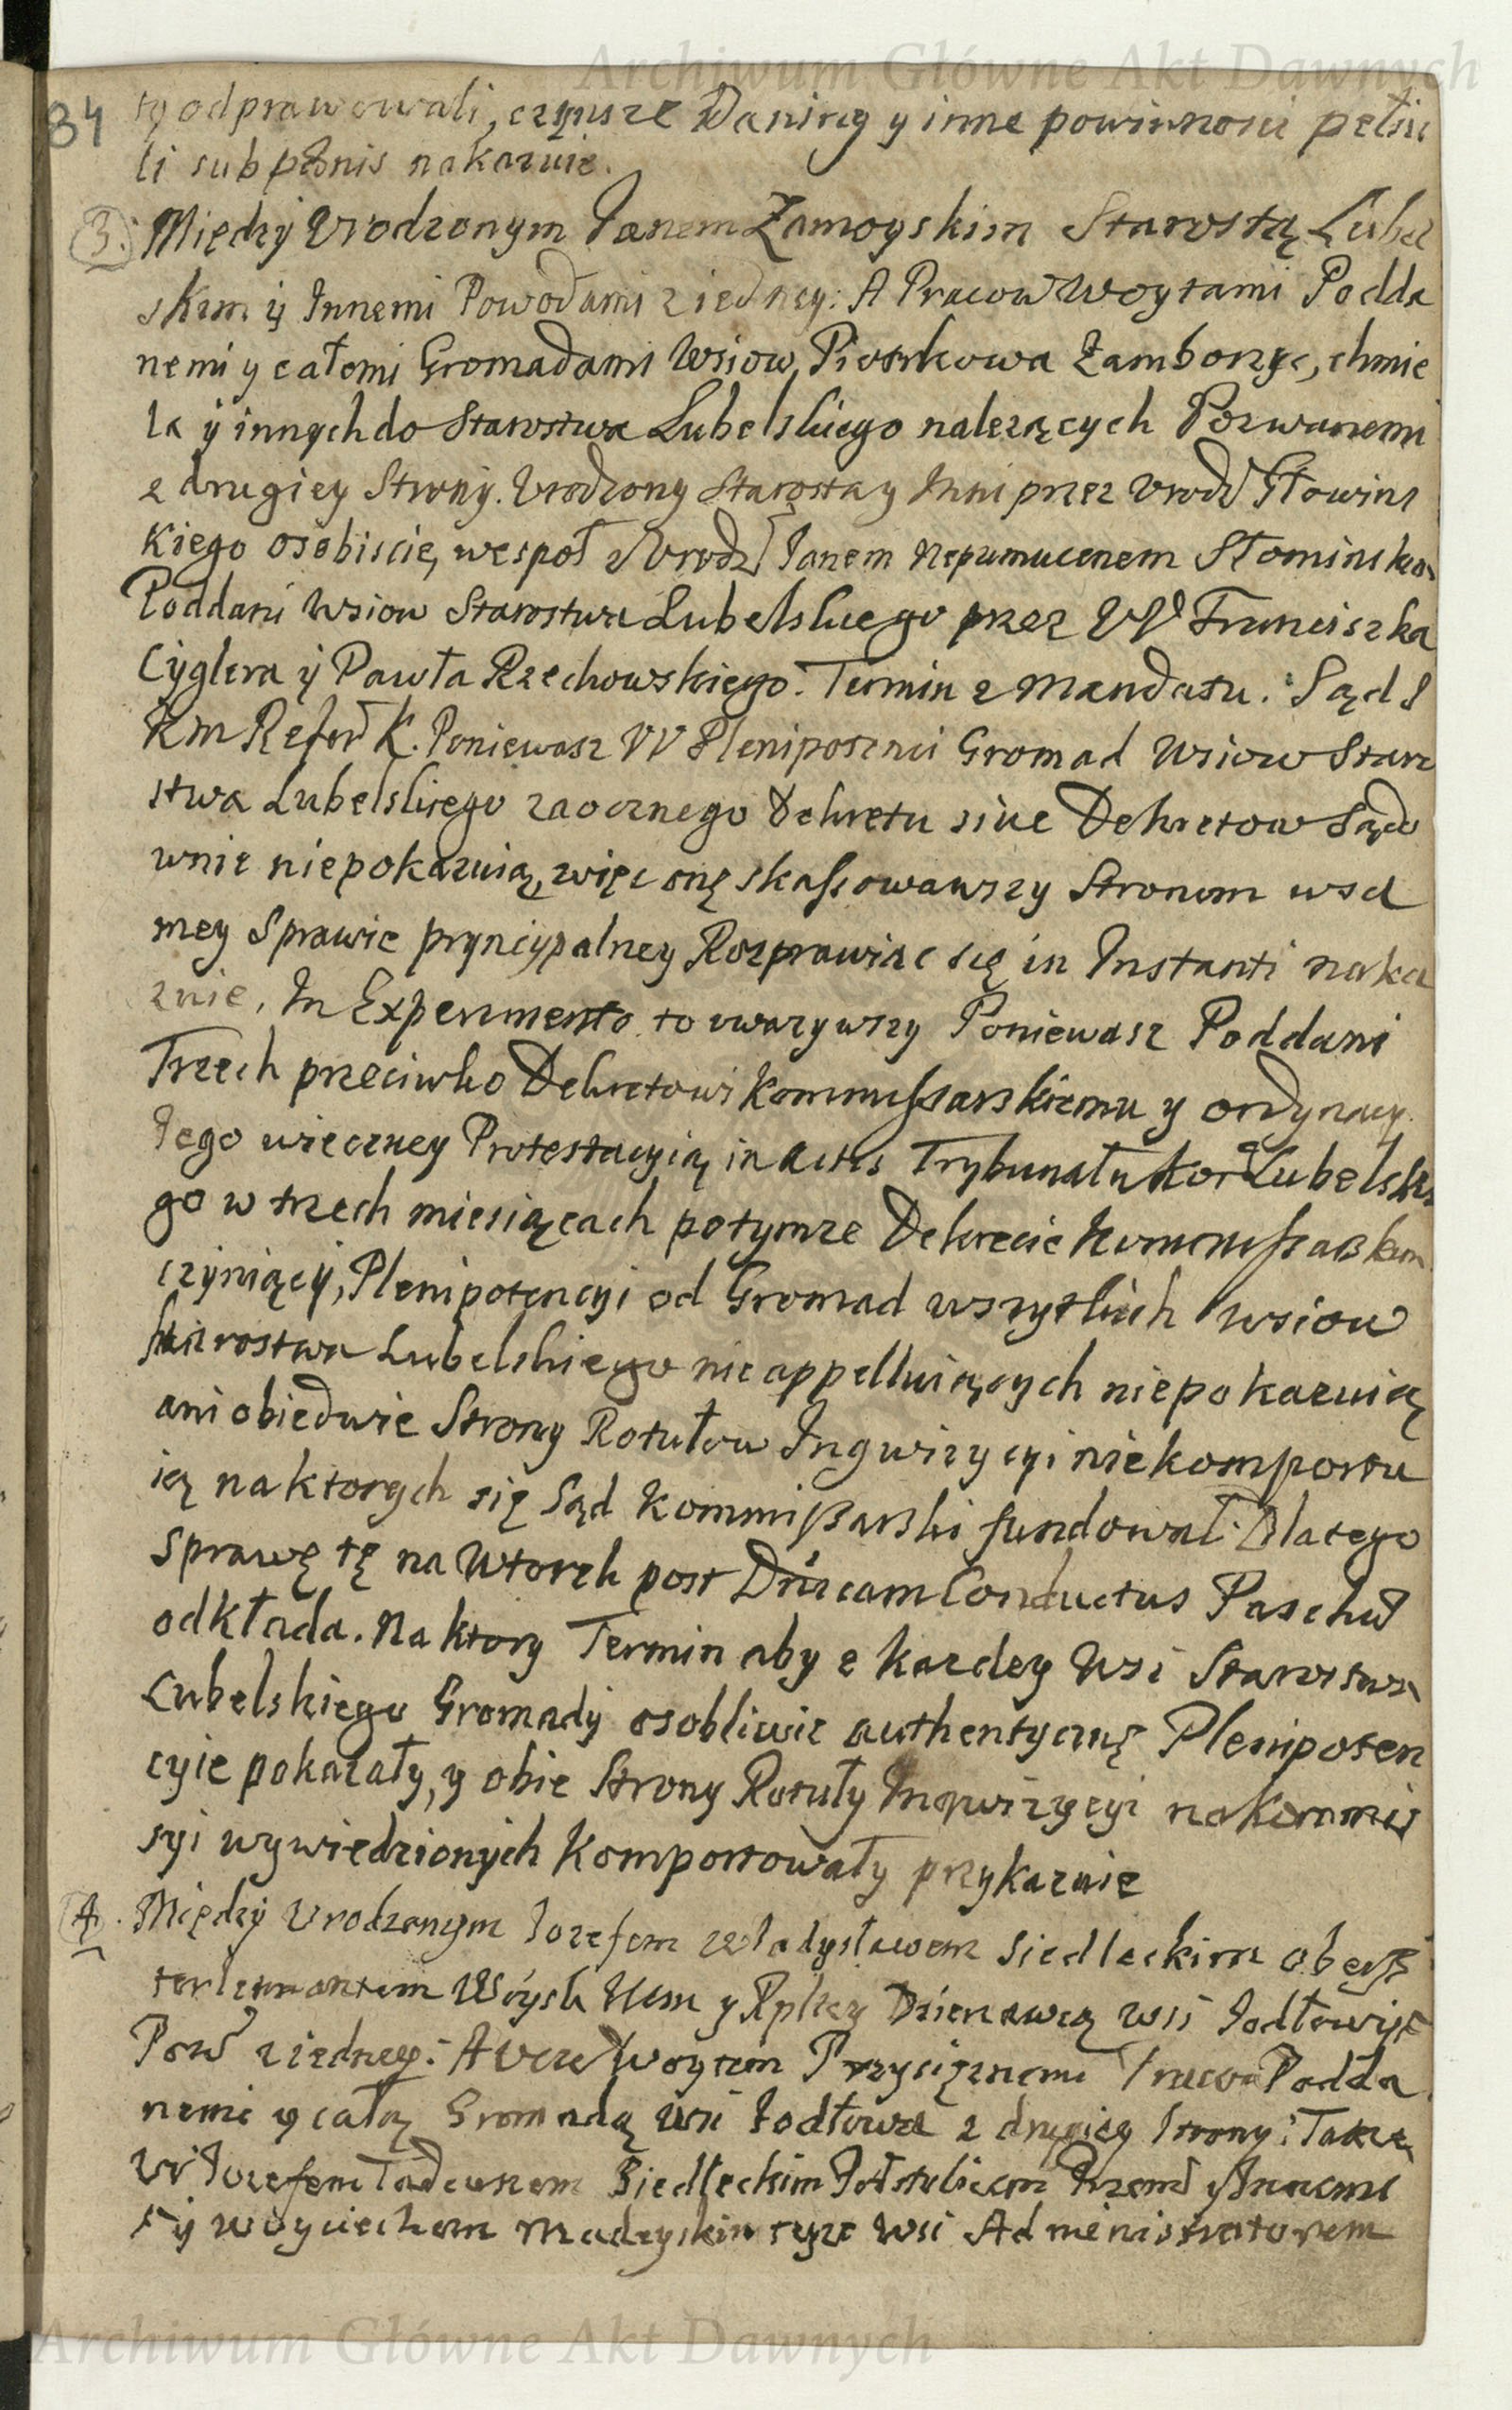 Archiwum Główne Akt Dawnych
84
ty odprawowali, czynsze Daniny y inne powinnosci pełni
li sub pœnis nakazuie.
3. Między Urodzonym Janem Zamoyskim Starostą Lubel
skim ÿ Innemi Powodami z iedney: A Pracow Woytami Podda
nemi y całemi Gromadami Wsiow, Piotrkowa Zamborzyc, chmie
la ÿ innych do Starostwa Lubelskiego należących Pozwanemi
z drugiey Strony. Urodzony Starosta y Inni przez Urodz Słowins
kiego osobiscie, wespoł z Urodz Janem Nepumucenem Słominsko
Poddani Wsiow Starostwa Lubelskiego przez UU Franciszka
Cyglera ÿ Pawła Rzechowskiego. Termin z Mandatu. Sąd J
K M Refer K. Poniewasz UU Plenipotenci Gromad Wsiow Staro
stwa Lubelskiego zaocznego Dekretu sive Dekretow Sądo
wnie niepokazuią, więc onę skassowawszy Stronom w sa
mey Sprawie pryncypalney Rozprawiac się in Instanti naka
zuie. In Experimento to uwazywszy Poniewasz Poddani
Trzech przeciwko Dekretowi Kommissarskiemu y ordynacy
Jego wieczney Protestacyią in Actis Trybunału Kor Lubelskie
go w trzech miesiącach potymze Dekrecie Kommissarskim
czyniący, Plenipotencyi od Gromad wszystkich Wsiow
Starostwa Lubelskiego nie appelluiących niepokazuią
ani obiedwie Strony Rotułow Inqwizycyi niekomportu
ią na ktorych się Sąd Kommissarski fundował. Dlatego
sprawę tę na Wtorek post Dnicam Conductus Paschæ
odkłada. Na ktory Termin aby z kazdey Wsi Starostwa
Lubelskiego Gromady osobliwie authentyczne Plenipoten
cyie pokazały, y obie Strony Rotuły Inqwizycyi na Kommis
syi wywiedzionych Komportowały przykazuie
4. Między Urodzonym Jozefem Władysławem Siedleckim obers
terleutnantem Woysk Kem y Rpltey Dzierzawcą wsi Jodłowy
Pow z iedney: A Woytem Przysięznemi Pracow Podda
nemi y całą Gromadą wsi Jodłowa z drugiey Strony: Takze
Ur Jozefem Tadeuszem Siedleckim Podstolicem Przem
y Woyciechem Madeyskim teyze Wsi Administratorem
Archiwum Główne Akt Dawnych